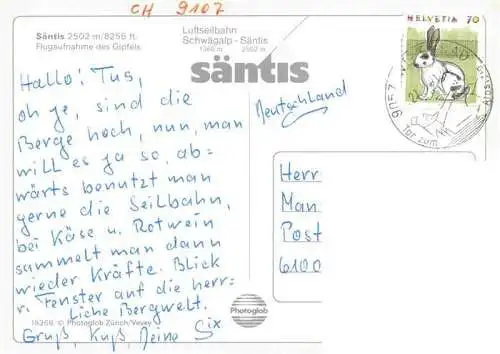 CH 9107
Säntis 2502 m/8256 ft.
Flugaufnahme des Gipfels
Luftseilbahn
Schwägalp - Säntis
1360 m 2502 m
säntis
HELVETIA 70
Hallo! Tus,
oh je, sind die
Berge hoch, nun, man
will es ja so, ab-
wärts benutzt man
gerne die Seilbahn,
bei Käse u. Rotwein
sammelt man dann
wieder Kräfte. Blick
v. Fenster auf die herr-
liche Bergwelt.
Gruß, Kuß, Deine Six
Deutschland
Herr
Man
Post
6100
Tor zum
Photoglob
18268 © Photoglob Zürich/Vevey